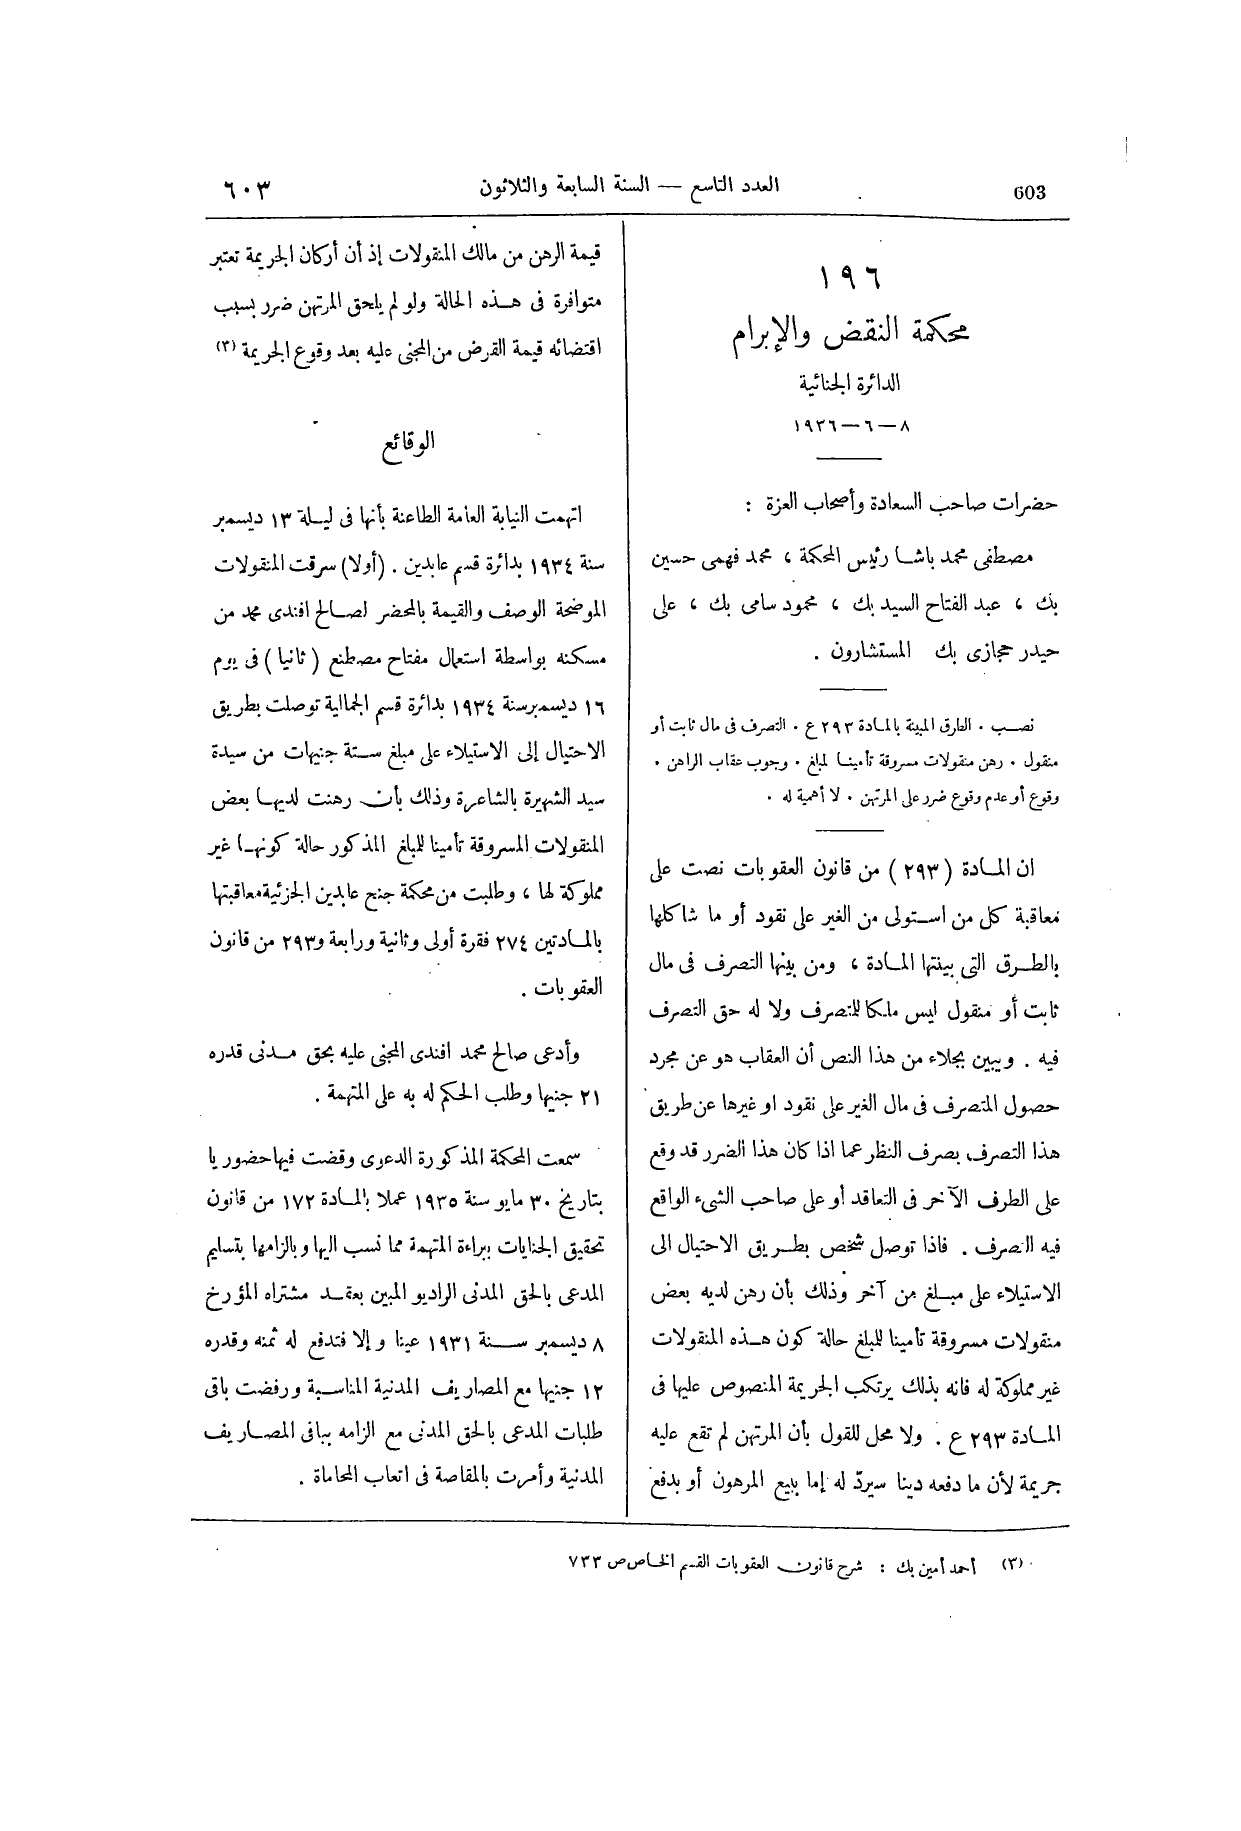 603
العدد التاسع — السنة السابعة والثلاثون
٦٠٣
١٩٦
محكمة النقض والإبرام
الدائرة الجنائية
٨ – ٦ – ١٩٣٦
حضرات صاحب السعادة وأصحاب العزة :
مصطفى محمد باشا رئيس المحكمة ، محمد فهمى حسين
بك ، عبد الفتاح السيد بك ، محمود سامى بك ، على
حيدر حجازى بك المستشارون .
نصب . الطرق المبينة بالمادة ٢٩٣ ع . التصرف فى مال ثابت أو
منقول . رهن منقولات مسروقة تأمينا لمبلغ . وجوب عقاب الراهن .
وقوع أو عدم وقوع ضرر على المرتهن . لا أهمية له .
ان المادة ( ٢٩٣ ) من قانون العقوبات نصت على
معاقبة كل من استولى من الغير على نقود أو ما شاكلها
بالطرق التى بينتها المادة ، ومن بينها التصرف فى مال
ثابت أو منقول ليس ملكا للتصرف ولا له حق التصرف
فيه . ويبين بجلاء من هذا النص أن العقاب هو عن مجرد
حصول المتصرف فى مال الغير على نقود او غيرها عن طريق
هذا التصرف بصرف النظر عما اذا كان هذا الضرر قد وقع
على الطرف الآخر فى التعاقد أو على صاحب الشىء الواقع
فيه التصرف . فاذا توصل شخص بطريق الاحتيال الى
الاستيلاء على مبلغ من آخر وذلك بأن رهن لديه بعض
منقولات مسروقة تأمينا للمبلغ حالة كون هذه المنقولات
غير مملوكة له فانه بذلك يرتكب الجريمة المنصوص عليها فى
المادة ٢٩٣ ع . ولا محل للقول بأن المرتهن لم تقع عليه
جريمة لأن ما دفعه دينا سيردّ له إما ببيع المرهون أو بدفع
قيمة الرهن من مالك المنقولات إذ أن أركان الجريمة تعتبر
متوافرة فى هذه الحالة ولو لم يلحق المرتهن ضرر بسبب
اقتضائه قيمة القرض من المجنى عليه بعد وقوع الجريمة (٣)
الوقائع
اتهمت النيابة العامة الطاعنة بأنها فى ليلة ١٣ ديسمبر
سنة ١٩٣٤ بدائرة قسم عابدين . (أولا) سرقت المنقولات
الموضحة الوصف والقيمة بالمحضر لصالح افندى محمد من
مسكنه بواسطة استعمال مفتاح مصطنع ( ثانيا ) فى يوم
١٦ ديسمبر سنة ١٩٣٤ بدائرة قسم الجمالية توصلت بطريق
الاحتيال إلى الاستيلاء على مبلغ ستة جنيهات من سيدة
سيد الشهيرة بالشاعرة وذلك بأن رهنت لديها بعض
المنقولات المسروقة تأمينا للمبلغ المذكور حالة كونها غير
مملوكة لها ، وطلبت من محكمة جنح عابدين الجزئية معاقبتها
بالمادتين ٢٧٤ فقرة أولى وثانية ورابعة و٢٩٣ من قانون
العقوبات .
وأدعى صالح محمد افندى المجنى عليه بحق مدنى قدره
٢١ جنيها وطلب الحكم له به على المتهمة .
سمعت المحكمة المذكورة الدعوى وقضت فيها حضوريا
بتاريخ ٣٠ مايو سنة ١٩٣٥ عملا بالمادة ١٧٢ من قانون
تحقيق الجنايات ببراءة المتهمة مما نسب اليها وبالزامها بتسليم
المدعى بالحق المدنى الراديو المبين بعقد مشتراه المؤرخ
٨ ديسمبر سنة ١٩٣١ عينا وإلا فتدفع له ثمنه وقدره
١٢ جنيها مع المصاريف المدنية المناسبة ورفضت باقى
طلبات المدعى بالحق المدنى مع الزامه بباقى المصاريف
المدنية وأمرت بالمقاصة فى اتعاب المحاماة .
(٣) أحمد أمين بك : شرح قانون العقوبات القسم الخاص ص ٧٣٣